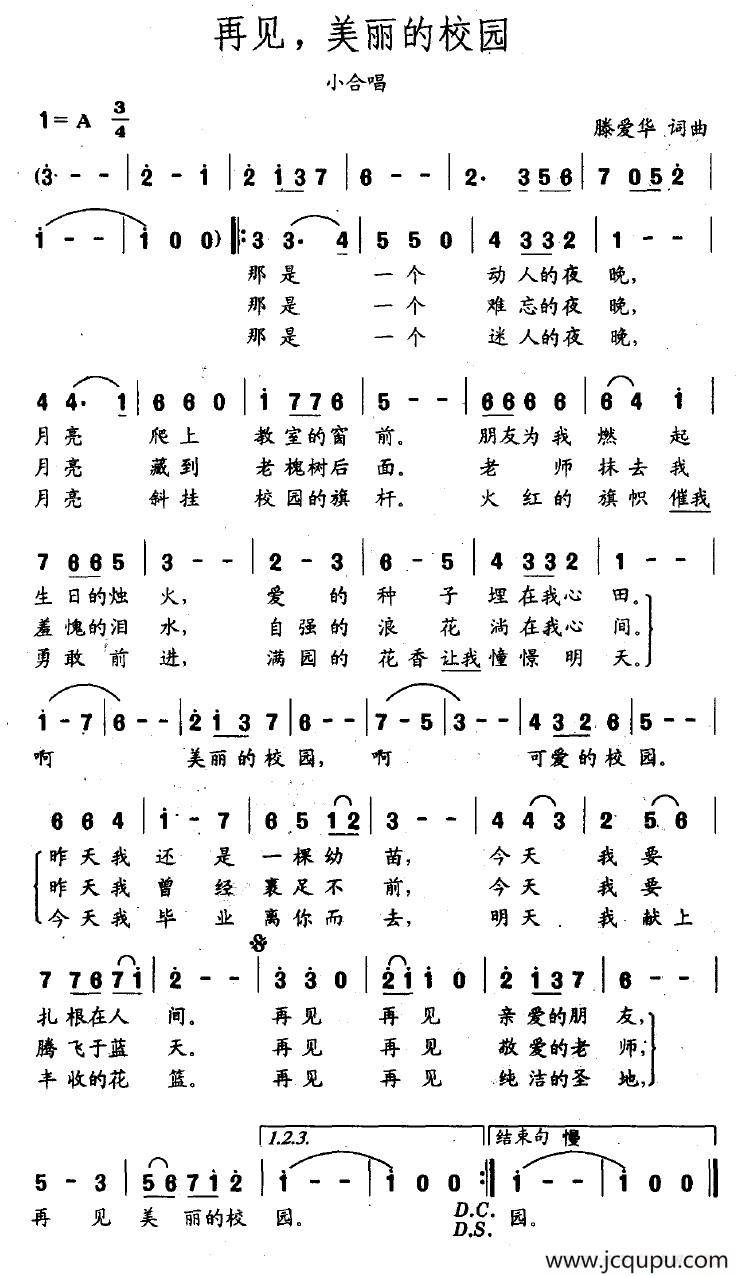 再见，美丽的校园
小合唱
1= A 3/4
滕爱华 词曲
(3̇ - - | 2̇ - i | 2̇ i̇3̇7 | 6 - - | 2. 356 | 7 052̇ |
i - - | i 0 0) |: 3 3. 4 | 5 5 0 | 4 332 | 1 - - |
那是 一个 动人的夜 晚，
那是 一个 难忘的夜 晚，
那是 一个 迷人的夜 晚，
4 4. 1 | 6 6 0 | i 776 | 5 - - | 666 6 | 6 4 i |
月亮 爬上 教室的窗 前。 朋友为我 燃 起
月亮 藏到 老槐树后 面。 老 师抹去 我
月亮 斜挂 校园的旗 杆。 火红的 旗帜 催我
7 665 | 3 - - | 2 - 3 | 6 - 5 | 4 332 | 1 - - |
生日的烛 火， 爱 的 种 子 埋在我心 田。
羞愧的泪 水， 自强 的 浪 花 淌在我心 间。
勇敢 前 进， 满园 的 花香 让我 憧憬 明 天。
i - 7 | 6 - - | 2̇ i̇3̇7 | 6 - - | 7 - 5 | 3 - - | 4 326 | 5 - - |
啊 美丽的校 园， 啊 可爱的校 园。
6 6 4 | i - 7 | 6 5 12 | 3 - - | 4 4 3 | 2 5 6 |
昨天我 还 是 一棵幼 苗， 今天 我 要
昨天我 曾 经 裹足不 前， 今天 我 要
今天我 毕 业 离你而 去， 明天 我 献上
7 767i | 2̇ - - | 3̇ 3̇ 0 | 2̇i i 0 | 2̇ i̇3̇7 | 6 - - |
扎根在人 间。 再见 再见 亲爱的朋 友，
腾飞于蓝 天。 再见 再见 敬爱的老 师，
丰收的花 篮。 再见 再见 纯洁的圣 地，
1.2.3. 结束句 慢
5 - 3 | 567i2̇ | i - - | i 0 0 :| i - - | i 0 0 |
再 见 美 丽的校 园。 D.C. 园。
D.S.
www.jcqupu.com